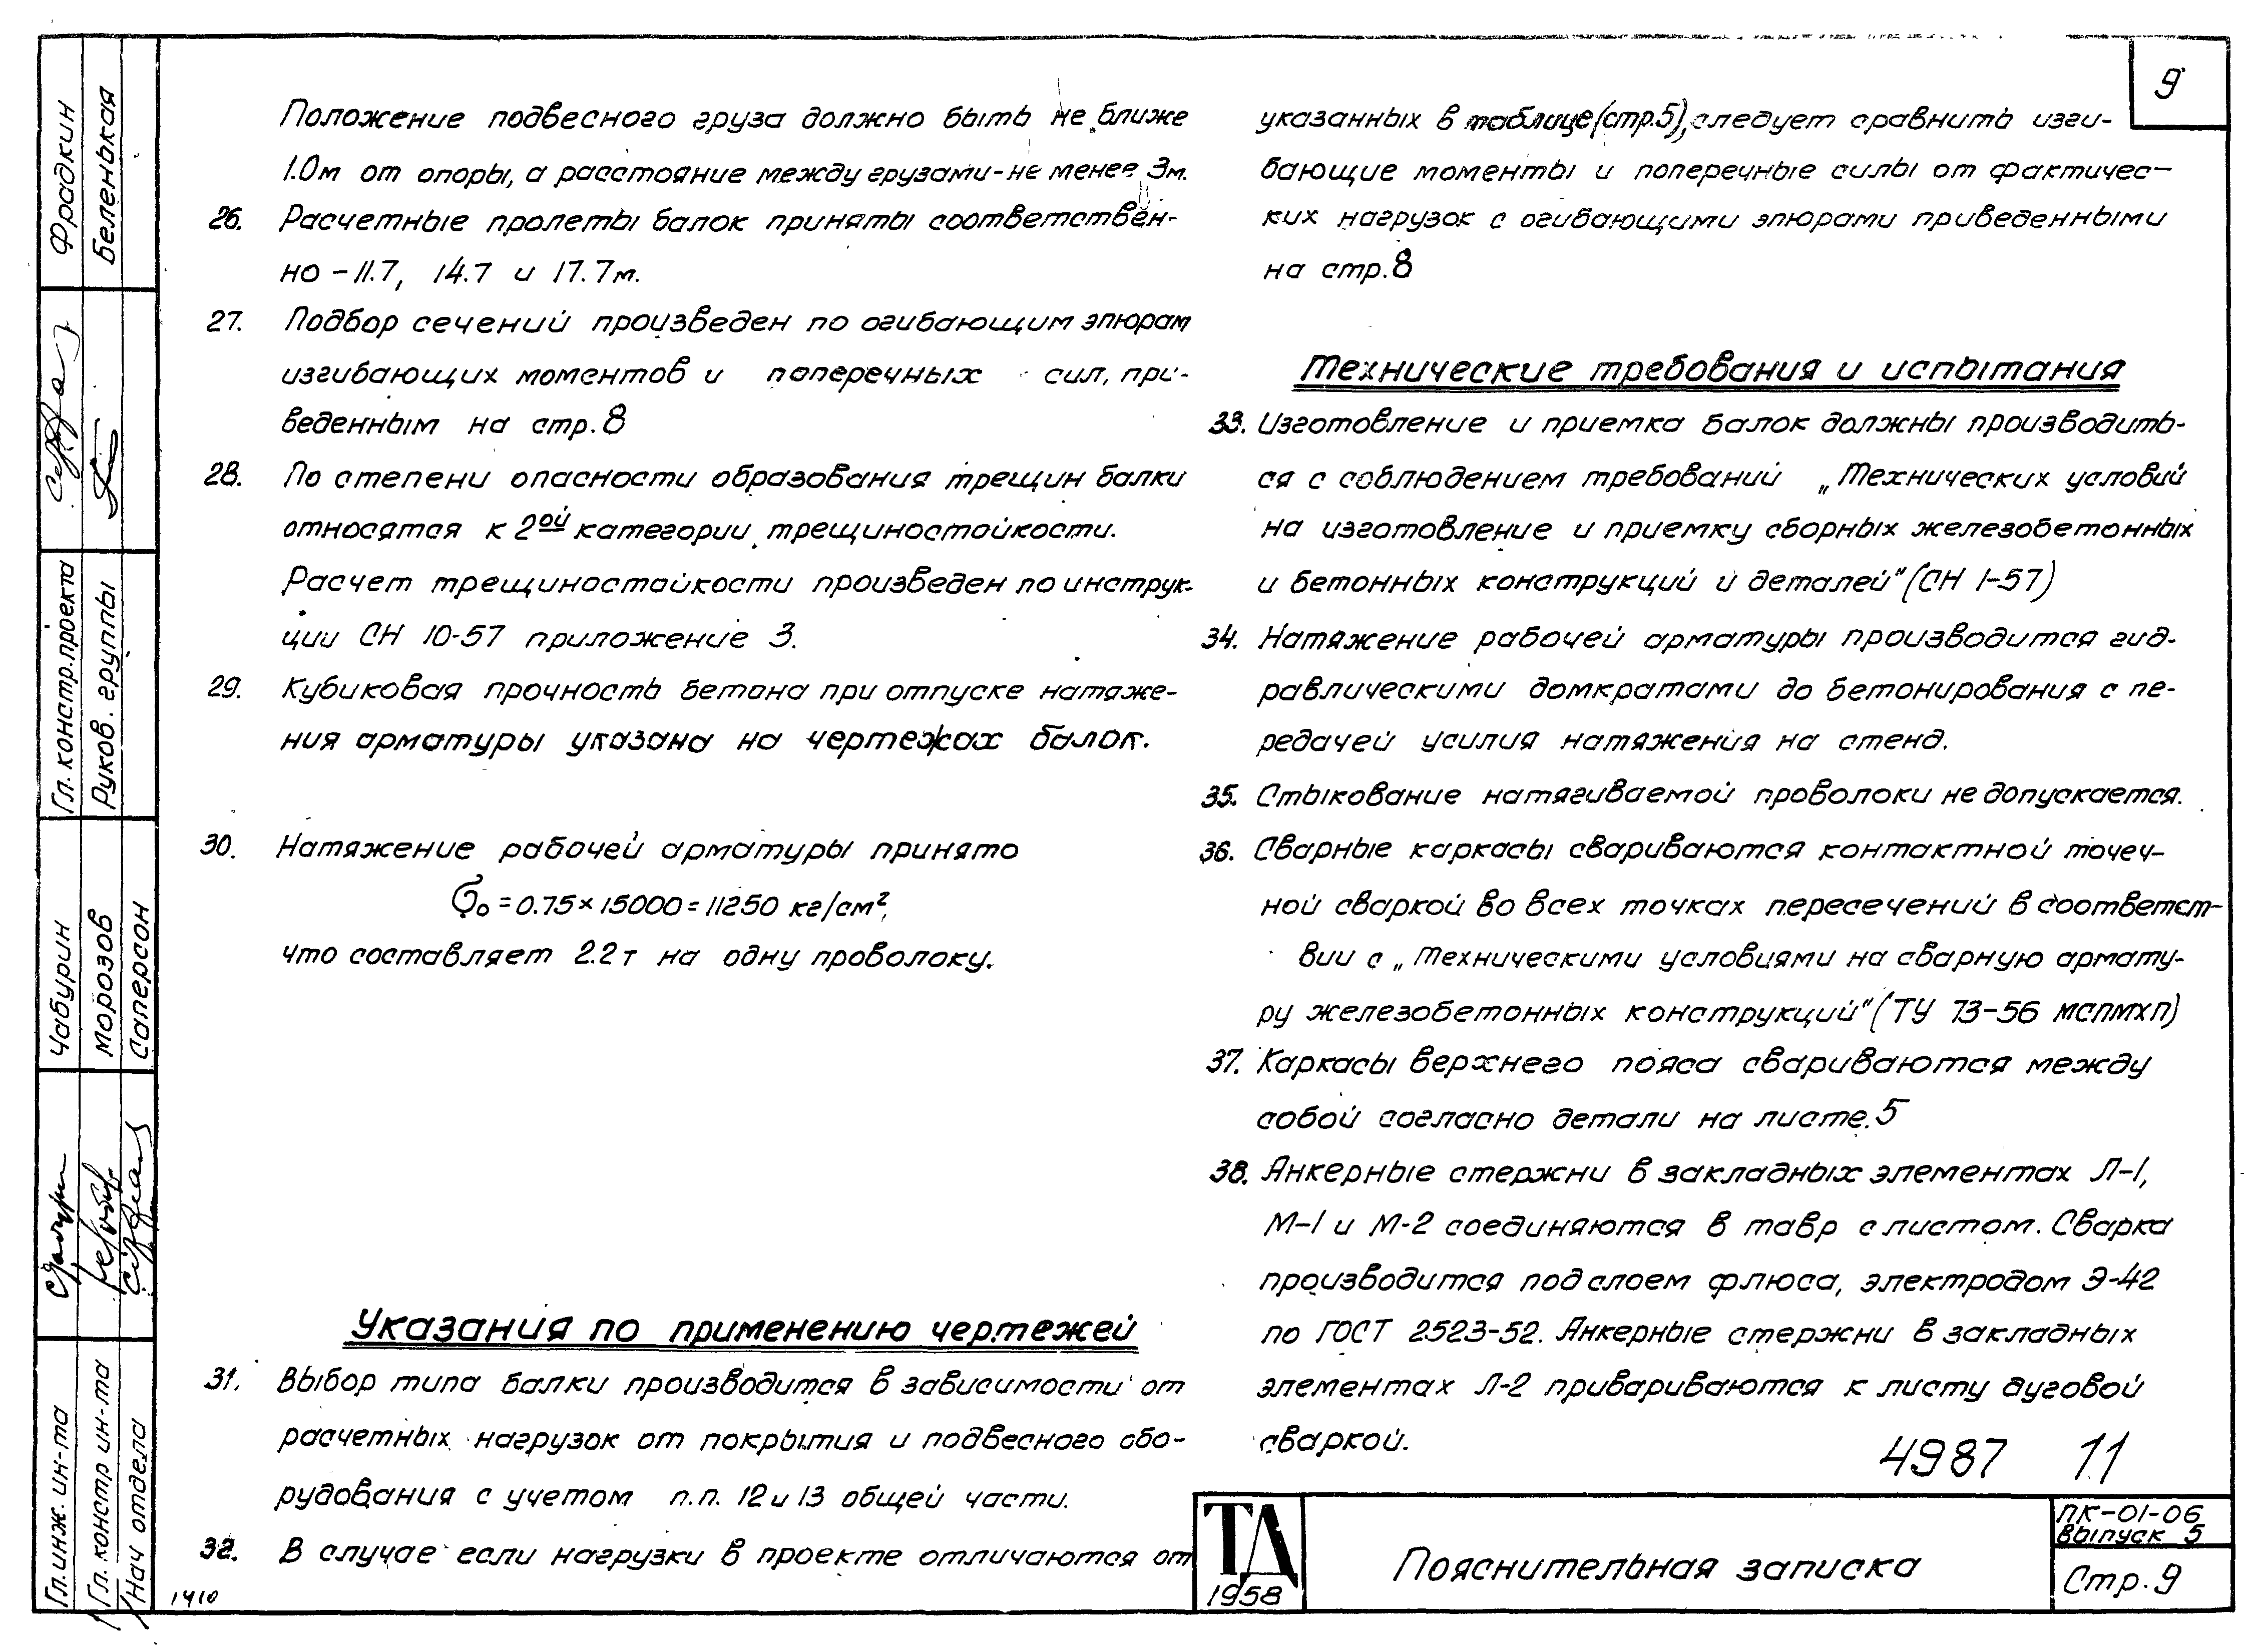 9
Положение подвесного груза должно быть не ближе
1.0м от опоры, а расстояние между грузами-не менее 3м.
26. Расчетные пролеты балок приняты соответствен-
но -11.7, 14.7 и 17.7м.
27. Подбор сечений произведен по огибающим эпюрам
изгибающих моментов и поперечных сил, при-
веденным на стр.8
28. По степени опасности образования трещин балки
относятся к 2ой категории трещиностойкости.
Расчет трещиностойкости произведен по инструк-
ции СН 10-57 приложение 3.
29. Кубиковая прочность бетона при отпуске натяже-
ния арматуры указана на чертежах балок.
30. Натяжение рабочей арматуры принято
σ₀ = 0.75×15000 = 11250 кг/см²,
что составляет 2.2т на одну проволоку.
Указания по применению чертежей
31. Выбор типа балки производится в зависимости от
расчетных нагрузок от покрытия и подвесного обо-
рудования с учетом п.п. 12 и 13 общей части.
32. В случае если нагрузки в проекте отличаются от
указанных в таблице (стр.5), следует сравнить изги-
бающие моменты и поперечные силы от фактичес-
ких нагрузок с огибающими эпюрами приведенными
на стр.8
Технические требования и испытания
33. Изготовление и приемка балок должны производить-
ся с соблюдением требований „Технических условий
на изготовление и приемку сборных железобетонных
и бетонных конструкций и деталей" (СН 1-57)
34. Натяжение рабочей арматуры производится гид-
равлическими домкратами до бетонирования с пе-
редачей усилия натяжения на стенд.
35. Стыкование натягиваемой проволоки не допускается.
36. Сварные каркасы свариваются контактной точеч-
ной сваркой во всех точках пересечений в соответст-
вии с „Техническими условиями на сварную армату-
ру железобетонных конструкций" (ТУ 73-56 МСПМХП)
37. Каркасы верхнего пояса свариваются между
собой согласно детали на листе.5
38. Анкерные стержни в закладных элементах Л-1,
М-1 и М-2 соединяются в тавр с листом. Сварка
производится под слоем флюса, электродом Э-42
по ГОСТ 2523-52. Анкерные стержни в закладных
элементах Л-2 привариваются к листу дуговой
сваркой.
4987 11
ТД
1958
Пояснительная записка
ПК-01-06
Выпуск 5
Стр.9
1410
Гл. инж. ин-та
Чабурин
Гл. констр.проекта
Фрадкин
Гл. констр ин-та
Морозов
Руков. группы
Беленькая
Нач отдела
Саперсон